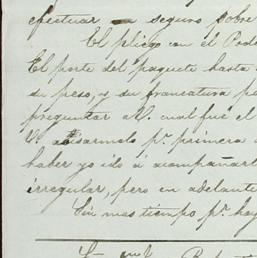 efectuar un seguro sobre
El pliego con el Pode
El porte del paquete hasta
su peso, y su francatura p
preguntar a V. cual fué el
V. avisarmelo pr. primera
haber yo ido á acompañart
irregular, pero en adelante
Sin mas tiempo pr. hoy